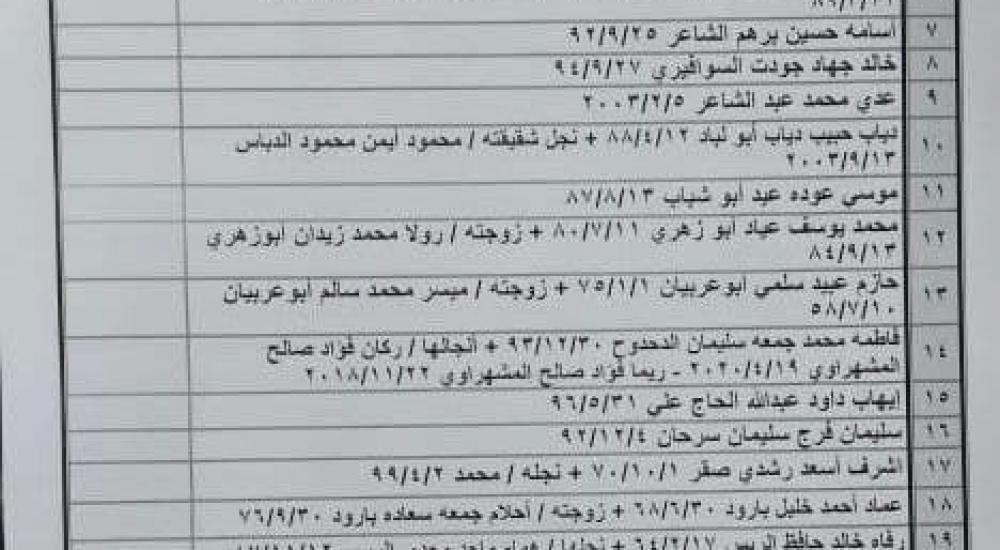 ٧ أسامه حسين برهم الشاعر ٩٢/٩/٢٥
٨ خالد جهاد جودت السوافيري ٩٤/٩/٢٧
٩ عدي محمد عبد الشاعر ٢٠٠٣/٢/٥
١٠ دياب حبيب دياب أبو لباد ٨٨/٤/١٢ + نجل شقيقته / محمود أيمن محمود الدباس
٢٠٠٣/٩/١٣
١١ موسي عوده عيد أبو شباب ٨٧/٨/١٣
١٢ محمد يوسف عياد ابو زهري ٨٠/٧/١١ + زوجته / رولا محمد زيدان ابوزهري
٨٤/٩/١٣
١٣ حازم عبيد سلمي ابوعربيان ٧٥/١/١ + زوجته / ميسر محمد سالم ابوعربيان
٥٨/٧/١٠
١٤ فاطمه محمد جمعه سليمان الدحدوح ٩٣/١٢/٣٠ + أنجالها / ركان فواد صالح
المشهراوي ٢٠٢٠/٤/١٩ - ريما فواد صالح المشهراوي ٢٠١٨/١١/٢٢
١٥ إيهاب داود عبدالله الحاج علي ٩٦/٥/٣١
١٦ سليمان فرج سليمان سرحان ٩٢/١٢/٤
١٧ اشرف أسعد رشدي صقر ٧٠/١٠/١ + نجله / محمد ٩٩/٤/٢
١٨ عماد أحمد خليل بارود ٦٨/٦/٣٠ + زوجته / أحلام جمعه سعاده بارود ٧٦/٩/٣٠
١٩ رفاه خالد حافظ الريس ٦٤/٢/١٧ + نجلها /